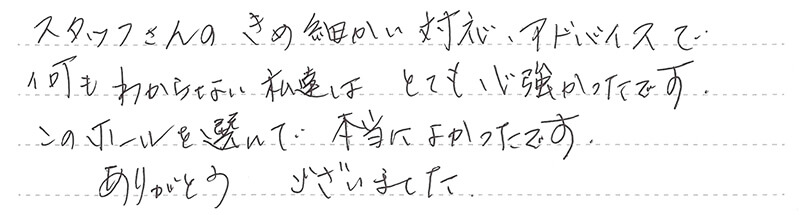 スタッフさんの きめ細かい 対応、アドバイスで
何も わからない 私達は とても 心強かったです.
このホールを選んで 本当に よかったです.
ありがとう ございました.